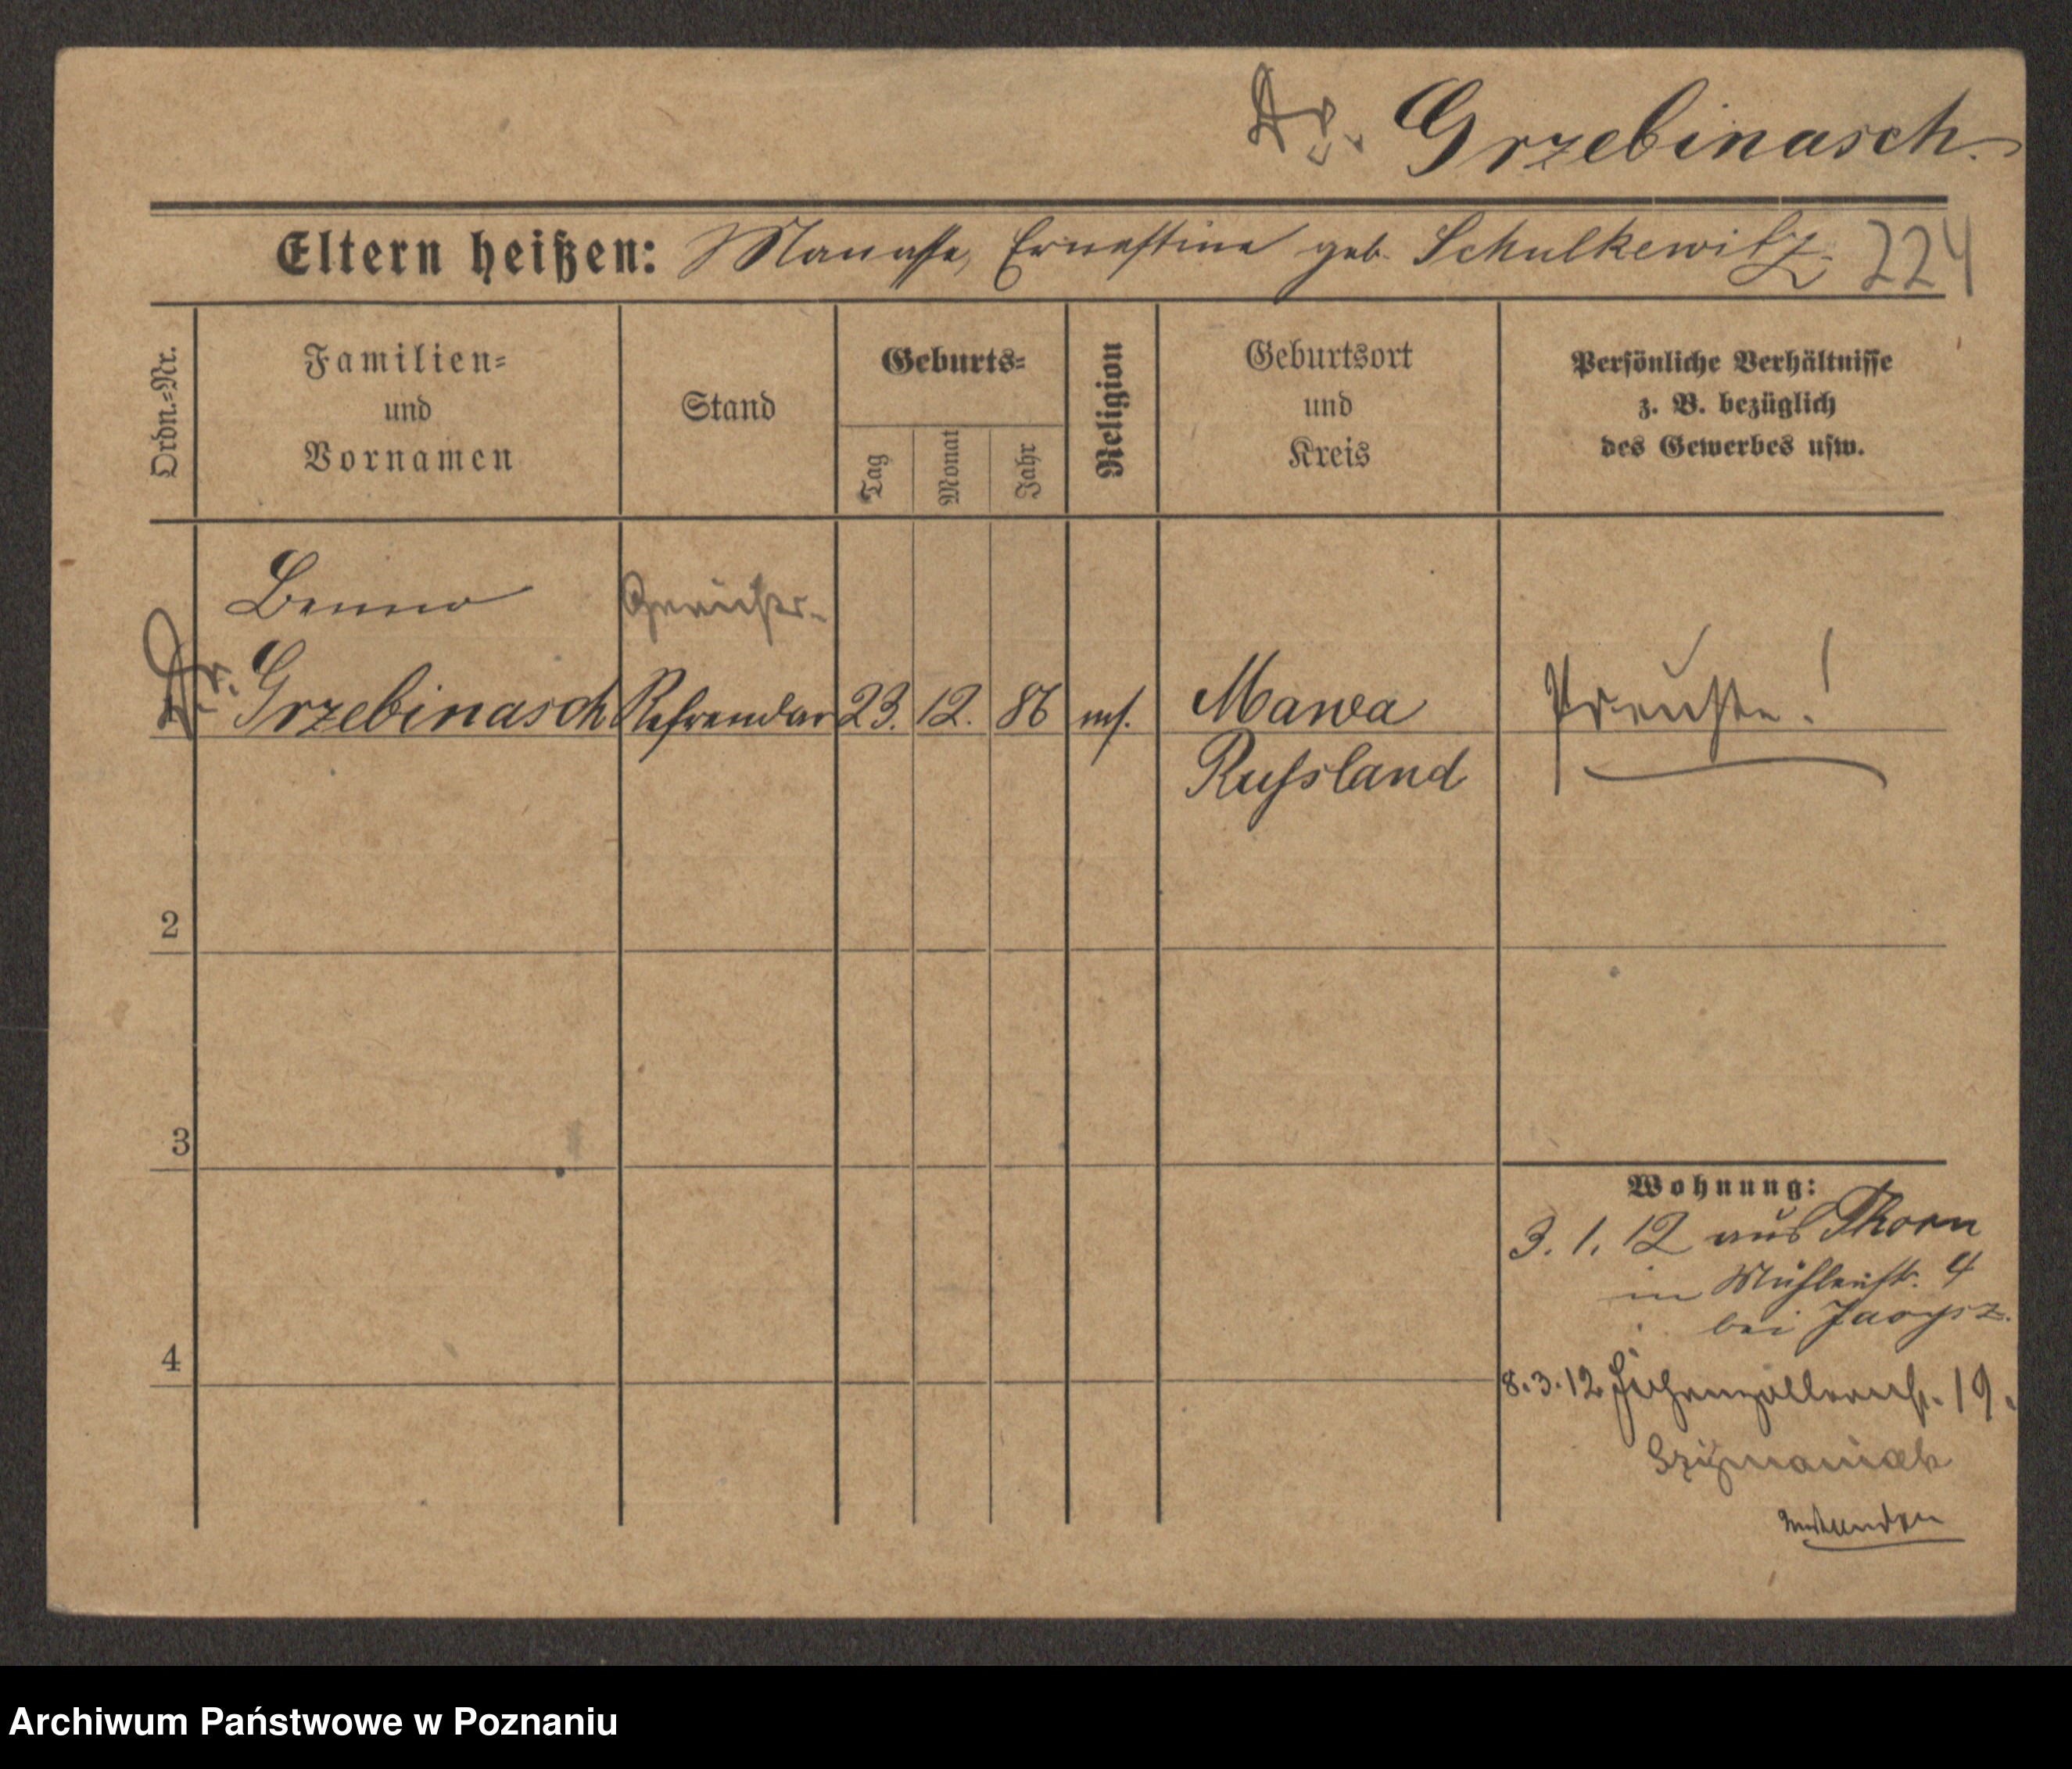 Dr. Grzebinasch.
Eltern heißen: Manasse, Ernestine geb. Schulkewitz 224
Ordn.-Nr.
Familien- und Vornamen
Stand
Geburts-
Tag
Monat
Jahr
Religion
Geburtsort und Kreis
Persönliche Verhältnisse z. B. bezüglich des Gewerbes usw.
Benno Gerichts-
Dr. Grzebinasch Referendar 23. 12. 86 mos. Mawa Preuße!
Russland
2
3
Wohnung:
3. 1. 12 aus Thorn
in Mühlenstr. 4
bei
4
8.3.12 Hohenzollernstr. 19.
Szymaniak
Archiwum Państwowe w Poznaniu